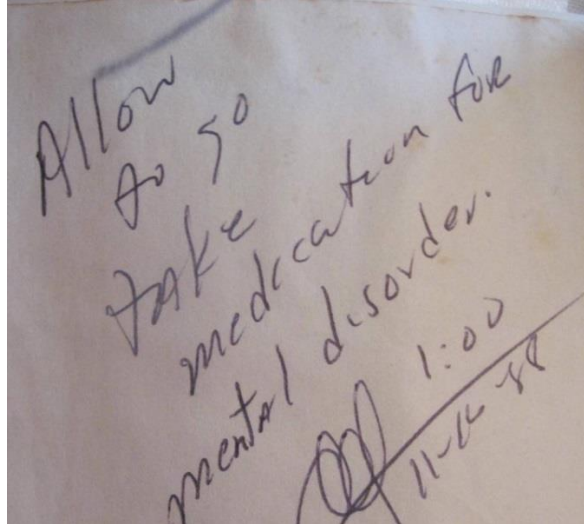 Allow
to go
take
medication for
mental disorder.
1:00